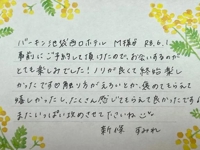 バーキン池袋西口ホテル M様が R8.6.1
事前にご予約して頂けたので、お会いするのが
とても楽しみでした！ノリが良くて終始楽し
かったですの触り方がえろいとか、褒めてもらえて
嬉しかったし、たくさん感じてもらえて良かったです
またいっぱい攻めさせてくださいね
新條 すみれ